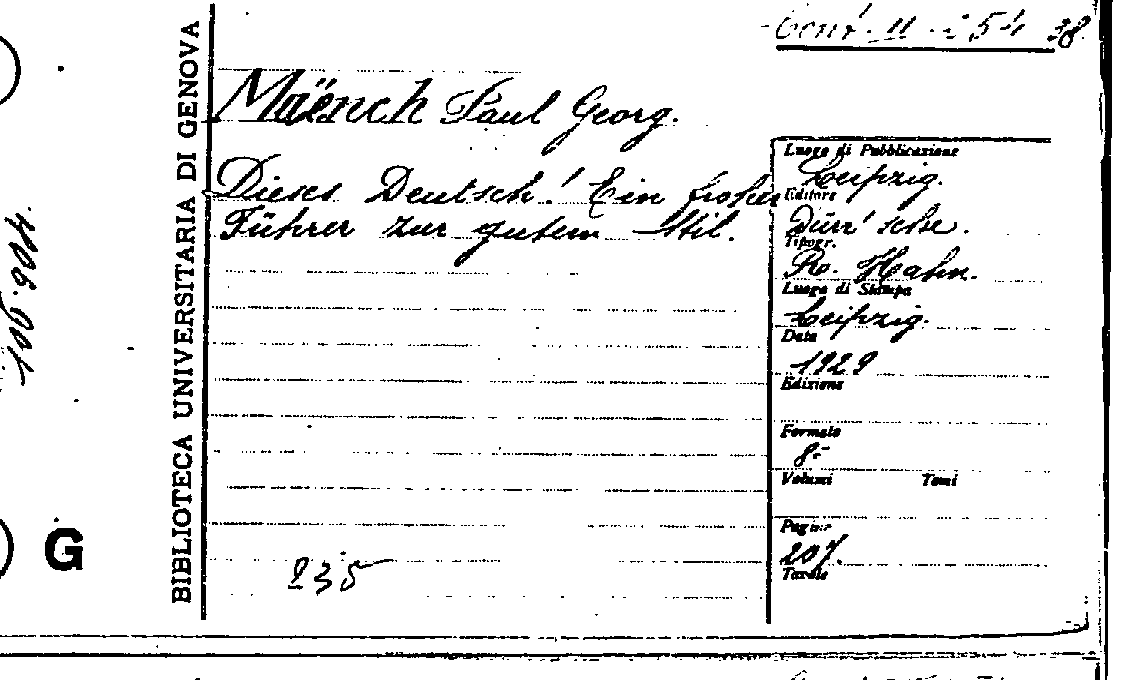 54 38.
Maënch Paul Georg.
Dieses Deutsch! Ein froher
Führer zur gutem Stil.
235
Luogo di Pubblicazione
Leipzig.
Editore
Dürr'sche.
Tipogr.
R. Hahn.
Luogo di Stampa
Leipzig.
Data
1929
Edizione
Formato
8°
Volumi Tomi
Pagine
207.
Tavole
BIBLIOTECA UNIVERSITARIA DI GENOVA
G